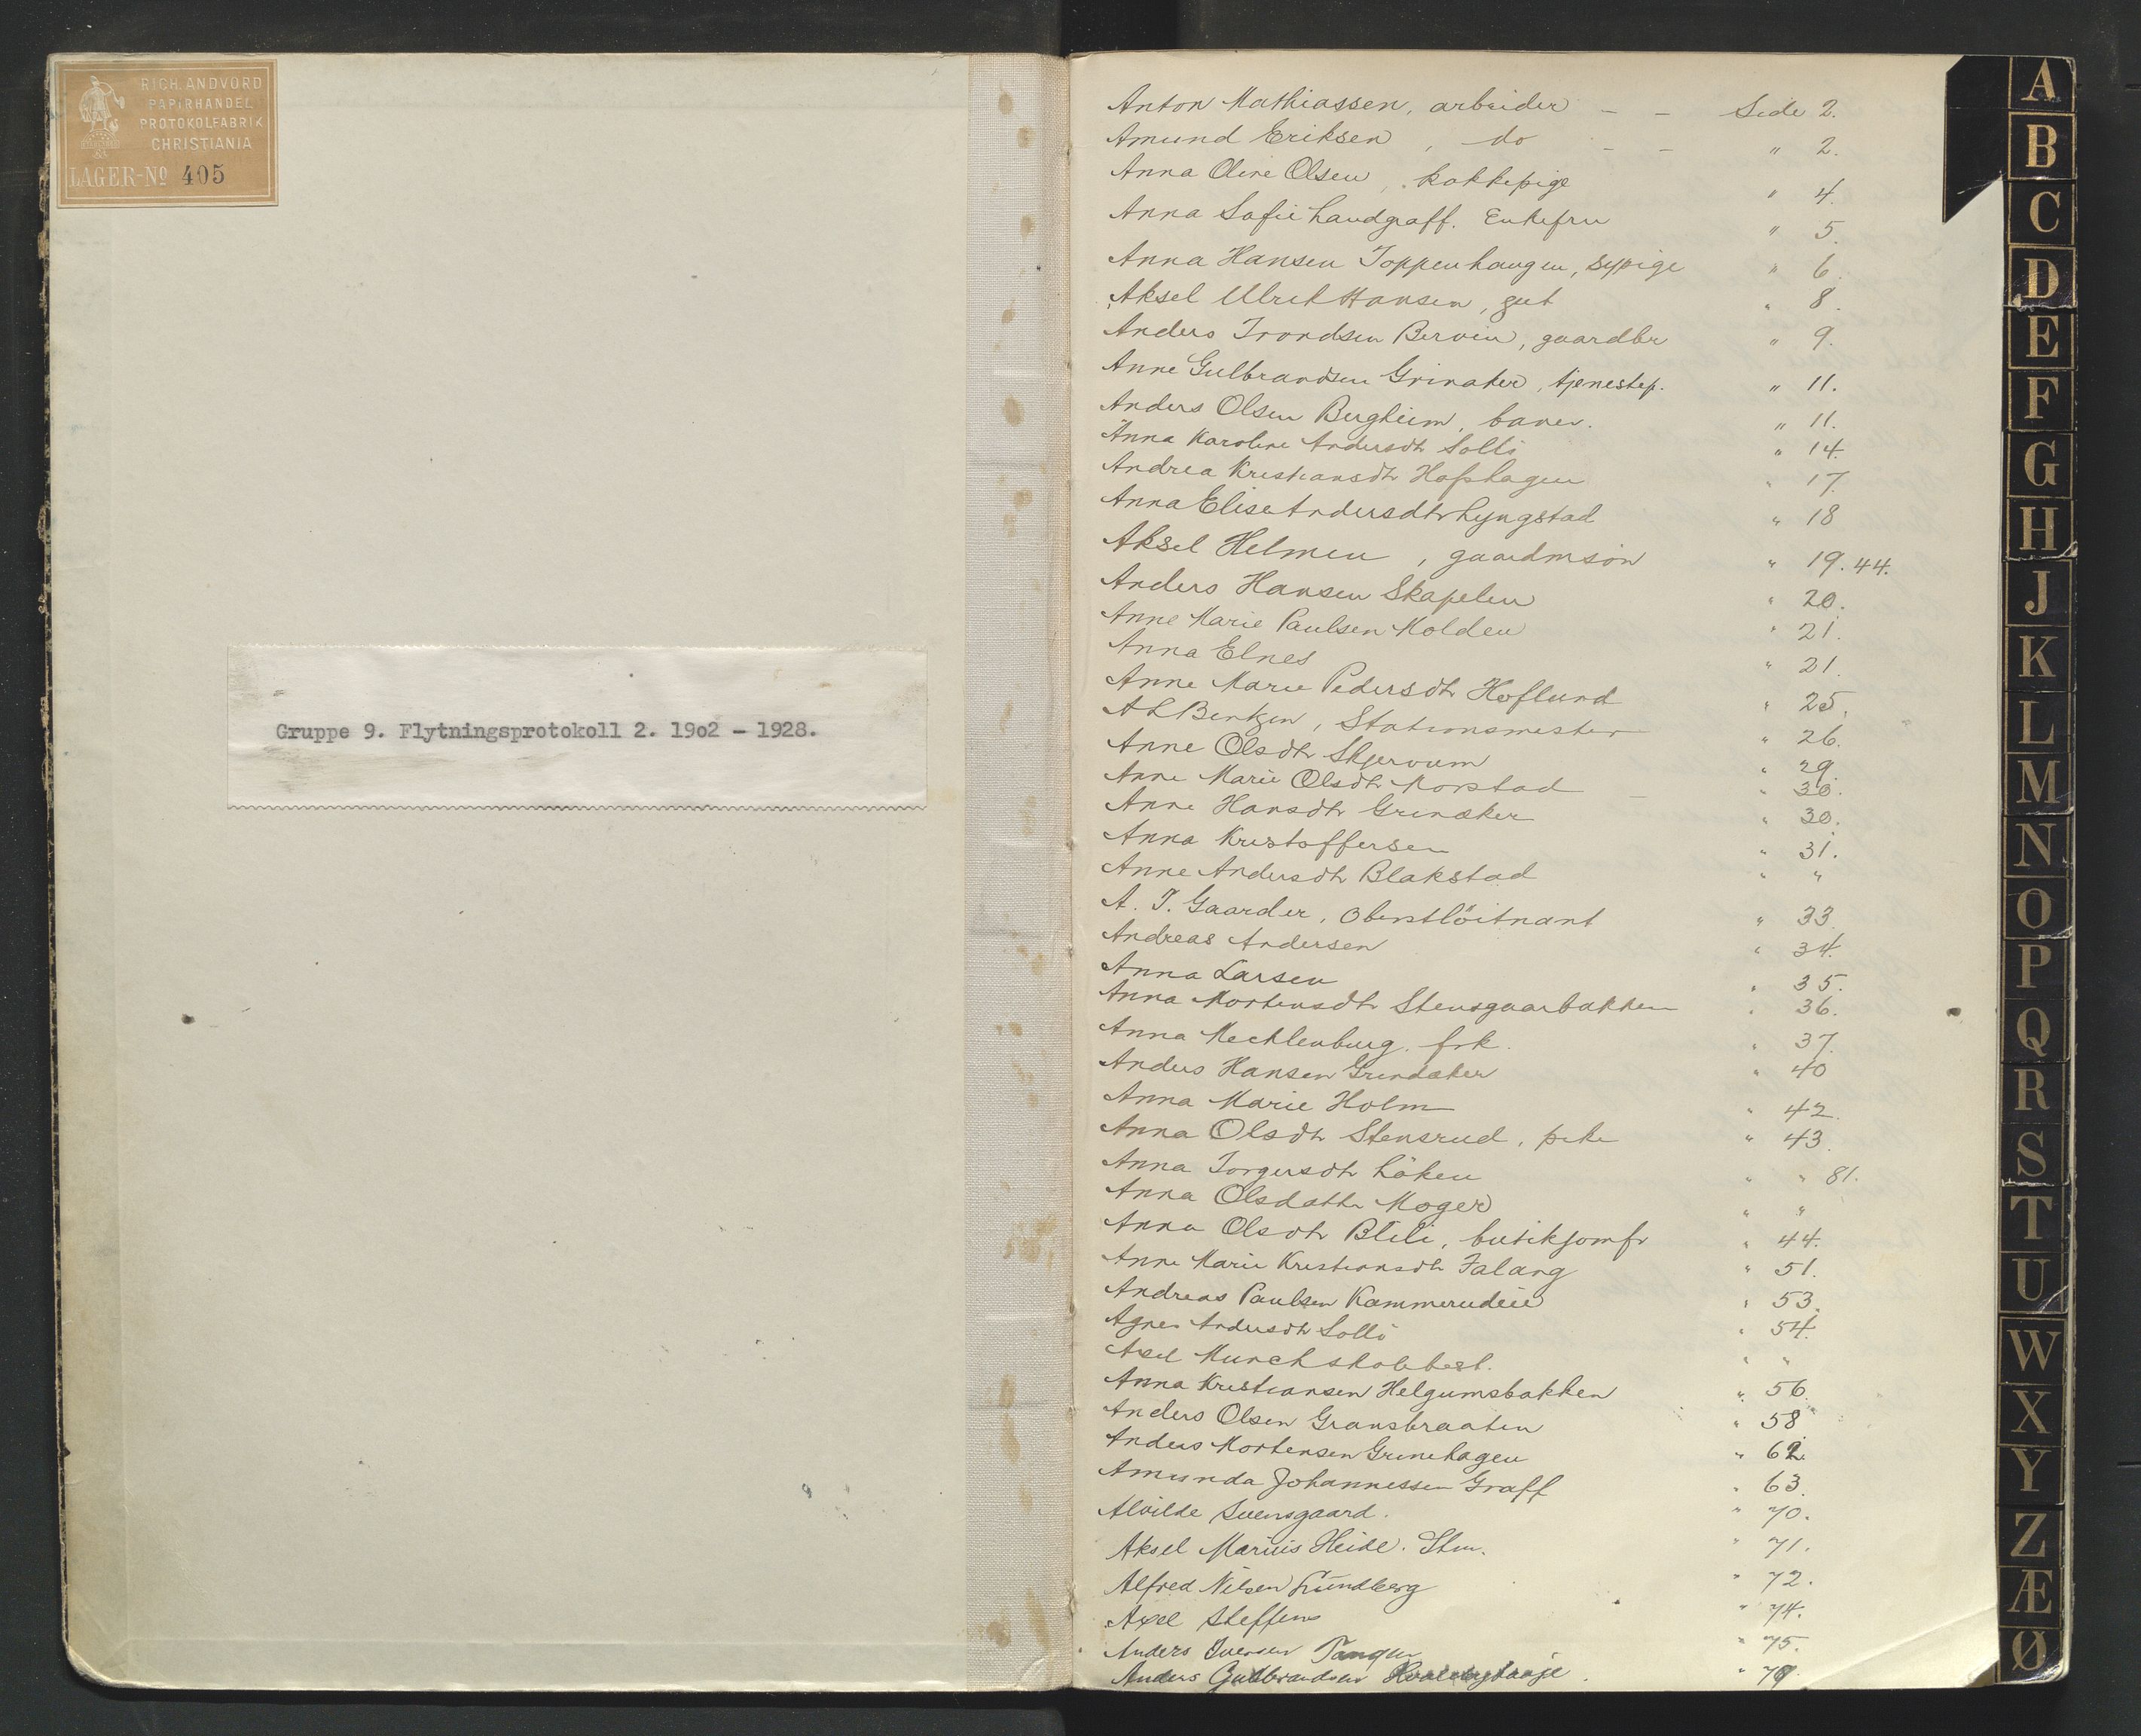 RICH. ANDVORD
PAPIRHANDEL
PROTOKOLFABRIK
CHRISTIANIA
LAGER-No 405
Gruppe 9. Flytningsprotokoll 2. 19o2 - 1928.
Anton Mathiassen, arbeider - - Side 2.
Amund Eriksen, do - - " 2.
Anna Oline Olsen, kokkepige " 4.
Anna Sofie Landgraff. Enkefru " 5.
Anna Hansen Toppenhaugen, sypige " 6.
Aksel Ulrik Hansen, gut " 8.
Anders Trondsen Bervin, gaardbr " 9.
Anne Gulbrandsen Grinaker, tjenestep. " 11.
Anders Olsen Bergheim, baner. " 11.
Anna Karoline Andersdtr Solli " 14.
Andrea Kristiansdtr Hofshagen " 17.
Anna Elise Andersdtr Lyngstad " 18
Aksel Helmen, gaardmsön " 19. 44.
Anders Hansen Skapelen " 20.
Anne Marie Paulsen Molden " 21.
Anna Elnes " 21.
Anne Marie Pedersdtr Hoflund " 25.
A L Bentzen, Stationsmester " 26.
Anne Olsdtr Skjervum " 29.
Anne Marie Olsdtr Morstad - " 30.
Anne Hansdtr Grinaker " 30.
Anna Kristoffersen " 31.
Anne Andersdtr Blakstad " "
A. T. Gaarder, Oberstlöitnant " 33.
Andreas Andersen " 34.
Anna Larsen " 35.
Anna Mortensdtr Stensgaarbakken " 36.
Anna Mechlenburg. frk. " 37.
Anders Hansen Grindaker " 40
Anna Marie Holm " 42.
Anna Olsdtr Stensrud, pike " 43.
Anna Torgersdtr Löken " " 81.
Anna Olsdatter Moger " "
Anna Olsdtr Blili, butikjomfr " 44.
Anne Marie Kristiansdtr Falang " 51.
Andreas Paulsen Kammerudeie " 53.
Agnes Andersdtr Solli " 54.
Axel Munch skolebest. " "
Anna Kristiansen Helgumsbakken " 56.
Anders Olsen Gransbraaten " 58
Anders Mortensen Grinehagen " 62.
Amunda Johannessen Graff " 63.
Alvilde Svensgaard. " 70.
Aksel Marius Heide. Stm. " 71.
Alfred Nilsen Lundberg " 72.
Axel Steffens " 74.
Anders Iversen Tangen " 75.
Anders Gulbrandsen "
A
B
C
D
E
F
G
H
J
K
L
M
N
O
P
Q
R
S
T
U
W
X
Y
Z
Æ
Ø